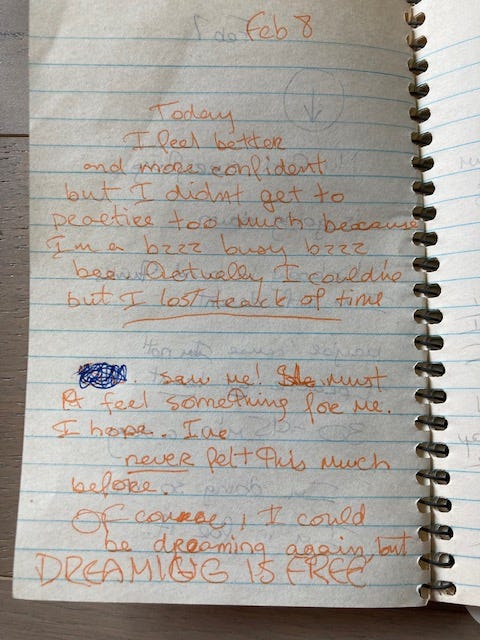 Feb 8
Today
I feel better
and more confident
but I didn't get to
practice too much because
I'm a bzzz busy bzzz
bee. Actually I could've
but I lost track of time
saw me! She must
feel something for me.
I hope. I've
never felt this much
before.
Of course, I could
be dreaming again, but
DREAMING IS FREE